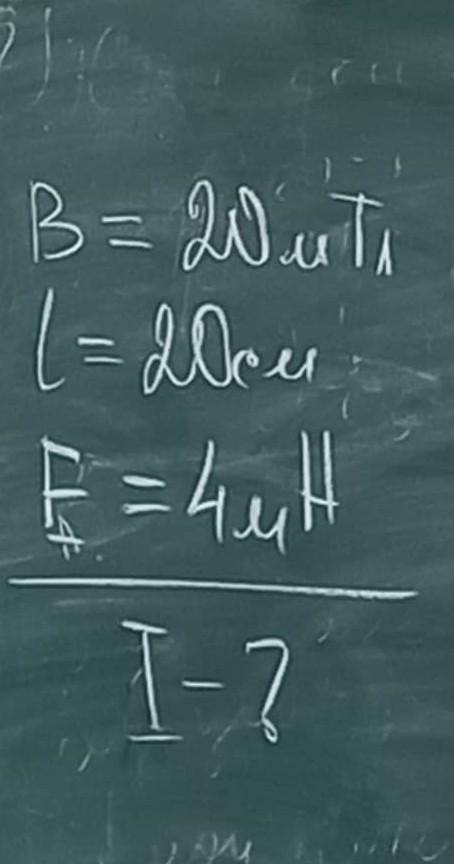 B = 20мТл
l = 20см
Fₐ = 4мН
I - ?